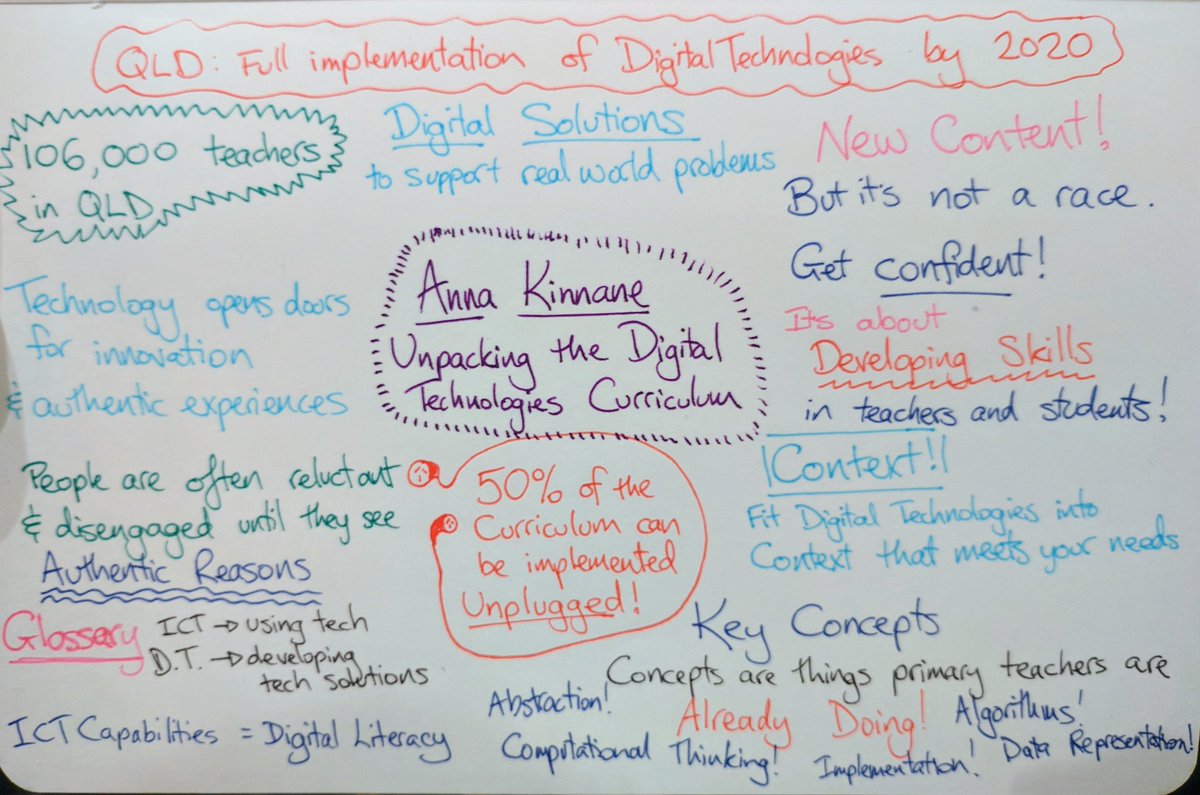 QLD: Full implementation of Digital Technologies by 2020
106,000 teachers
in QLD
Digital Solutions
to support real world problems
New Content!
But it's not a race.
Get confident!
It's about
Developing Skills
in teachers and students!
Technology opens doors
for innovation
& authentic experiences
Anna Kinnane
Unpacking the Digital
Technologies Curriculum
Context!
Fit Digital Technologies into
Context that meets your needs
People are often reluctant
& disengaged until they see
Authentic Reasons
50% of the
Curriculum can
be implemented
Unplugged!
Glossary
ICT → using tech
D.T. → developing
tech solutions
ICT Capabilities = Digital Literacy
Key Concepts
Concepts are things primary teachers are
Already Doing!
Abstraction!
Algorithms!
Computational Thinking!
Implementation!
Data Representation!